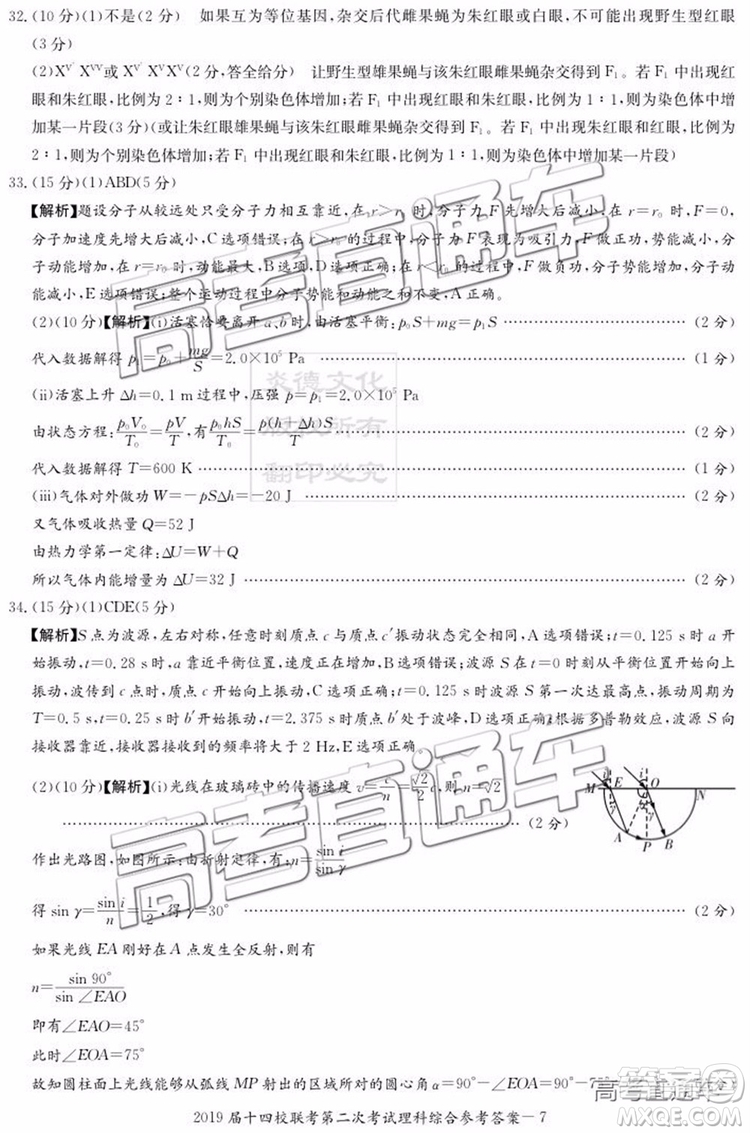 32.(10分)(1)不是(2分)　如果为等位基因,杂交后代雌果蝇为朱红眼或白眼,不可能出现野生型红眼
(3分)
(2)X^{v^r} X^{vv} X^{v^r} X^v X^v(2分,答全给分)　让野生型雄果蝇与该朱红眼雌果蝇杂交得到F₁。若F₁中出现红
眼和朱红眼,比例为2∶1,则为个别染色体增加;若F₁中出现红眼和朱红眼,比例为1∶1,则为染色体中增
加某一片段(3分)(或让朱红眼雄果蝇与该朱红眼雌果蝇杂交得到F₁。若F₁中出现红眼和朱红眼,比例为
2∶1,则为个别染色体增加;若F₁中出现红眼和朱红眼,比例为1∶1,则为染色体中增加某一片段)
33.(15分)(1)ABD(5分)
【解析】题设分子从较远处只受分子力相互靠近,在r>r₀时,分子力F先增大后减小,在r=r₀时,F=0,
分子加速度先增大后减小,C选项错误;在r>r₀的过程中,分子力F表现为吸引力,F做正功,分子动能增加,
分子势能减小,在r=r₀时,动能最大,B、D选项正确;在r<r₀的过程中,F做负功,分子动能减小,分子势能不
减小,E选项错误;整个运动过程中分子势能和动能之和不变,A正确。
(2)(10分)【解析】(i)活塞恰要离开a、b时,由活塞平衡:p₀S+mg=p₁S (2分)
代入数据解得p₁=p₀+mg/S=2.0×10⁵ Pa (1分)
(ii)活塞上升Δh=0.1 m过程中,压强p=p₁=2.0×10⁵ Pa
由状态方程:p₀V₀/T₀=pV/T,有p₀hS/T₀=p(h+Δh)S/T (2分)
代入数据解得T=600 K (1分)
(iii)气体对外做功W=-pSΔh=-20 J (2分)
又气体吸收热量Q=52 J
由热力学第一定律:ΔU=W+Q
所以气体内能增量为ΔU=32 J (2分)
34.(15分)(1)CDE(5分)
【解析】S点为波源,左右对称,任意时刻质点c与质点c′振动状态完全相同,A选项错误;t=0.125 s时a开
始振动,t=0.28 s时,a靠近平衡位置,速度正在增加,B选项错误;波源S的质点从平衡位置开始向上
振动,波传到c点时,质点c开始向上振动,C选项正确;t=0.125 s时波源S第一次达最高点,振动周期为
T=0.5 s,t=0.25 s时b′开始振动,t=2.375 s时b′处于波峰,D选项正确;根据多普勒效应,波源S向
接收器靠近,接收器接收到的频率将大于2 Hz,E选项正确。
(2)(10分)【解析】(i)光线在玻璃砖中的传播速度v=c/n=√2/2 c,则n=√2
(2分)
M E O N
i i
γ
A P B
作出光路图,如图所示:由折射定律,有:n=sin i/sin γ
得sin γ=sin i/n=1/2,得γ=30° (2分)
如果光线EA刚好在A点发生全反射,则有
n=sin 90°/sin ∠EAO
即有∠EAO=45°
此时∠EOA=75°
故知圆柱面上光线能够从弧线MP射出的区域所对的圆心角α=90°-∠EOA=90°-75°
2019届十四校联考第二次考试理科综合参考答案-7
高考直通车
高考直通车
炎德文化
版权所有
翻印必究
高考直通车